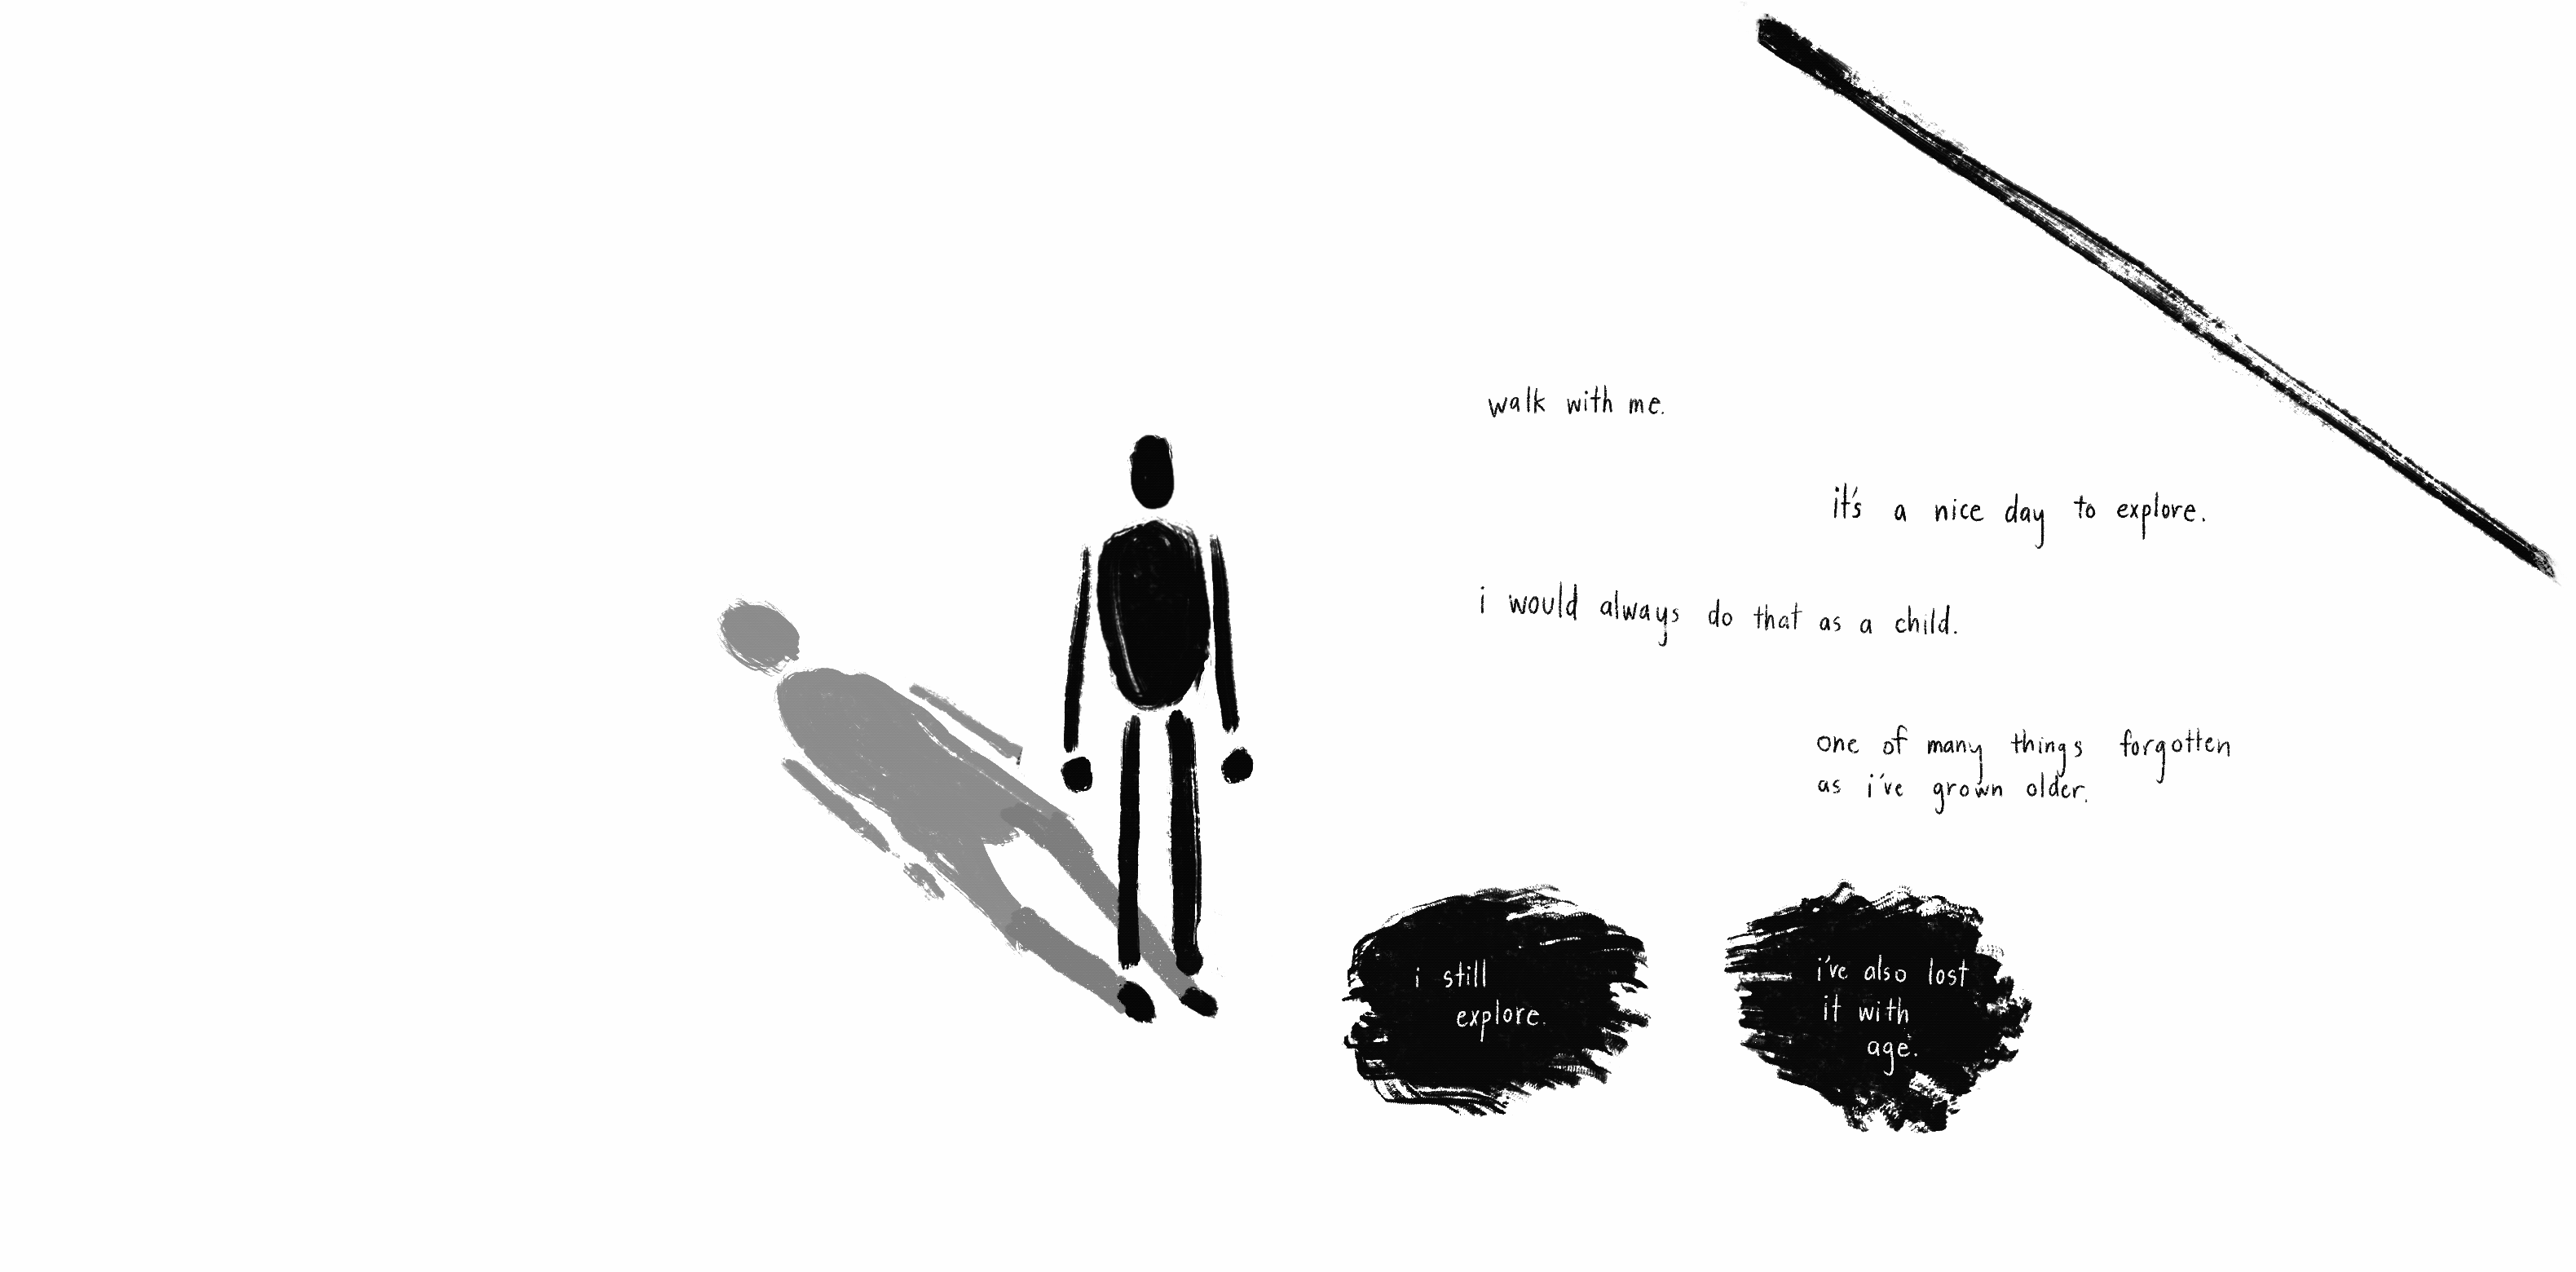 walk with me.
it's a nice day to explore.
i would always do that as a child.
one of many things forgotten
as i've grown older.
i still
explore.
i've also lost
it with
age.